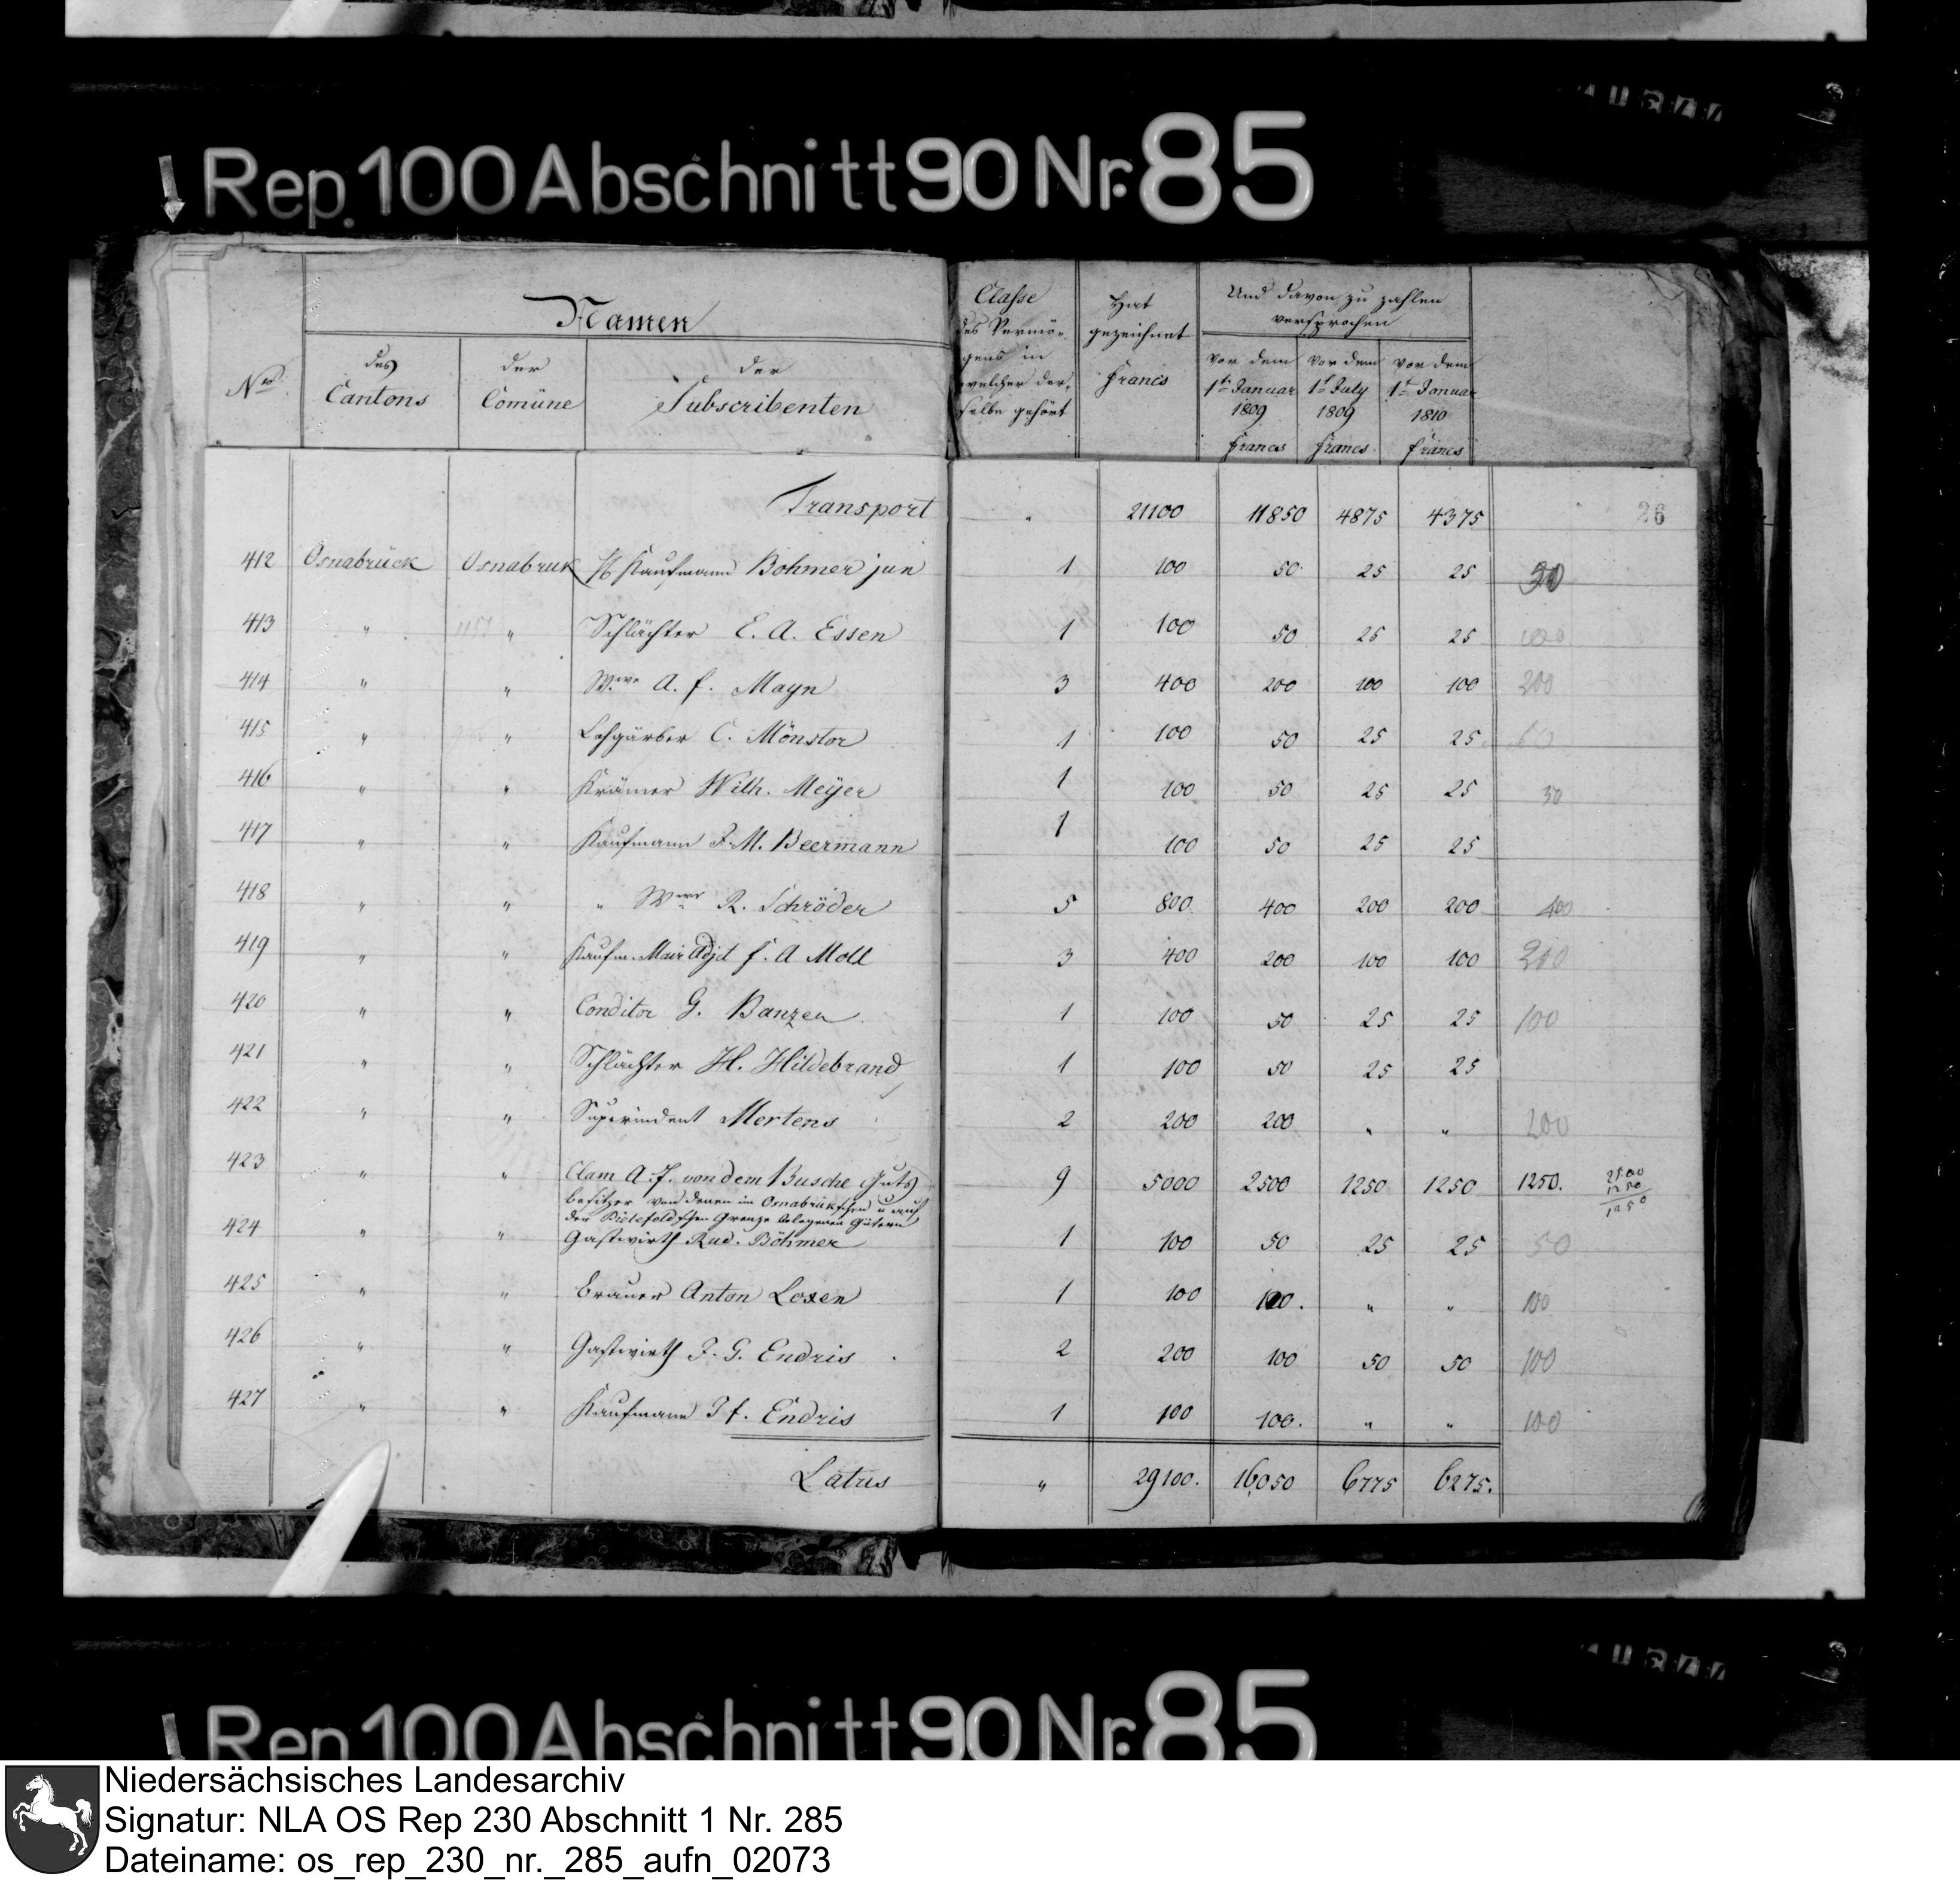 Rep. 100 Abschnitt 90 Nr. 85
No. Namen Classe des Vermö- gens in welcher der- selbe gehört Hat gezeichnet Francs Und davon zu zahlen versprochen
des Cantons der Comüne der Subscribenten vor dem 1ten Januar 1809 Francs vor dem 1t July 1809 Francs vor dem 1t Januar 1810 Francs
Transport " 21100 11850 4875 4375 26
412 Osnabrück Osnabruk Kaufmann Bohmer jun 1 100 50 25 25
413 " " Schlächter E. A. Essen 1 100 50 25 25 100
414 " " Wwe A. F. Mayn 3 400 200 100 100 200
415 " " Lohgärber C. Mönstor 1 100 50 25 25
416 " " Krämer Wilh. Meÿer 1 100 50 25 25 50
417 " " Kaufmann J. M. Beermann 1 100 50 25 25
418 " " " Wwe R. Schröder 5 800 400 200 200 400
419 " " Kaufm. Mair Adjt F. A Moll 3 400 200 100 100
420 " " Conditor G. Banzen 1 100 50 25 25 100
421 " " Schlächter H. Hildebrand 1 100 50 25 25
422 " " Superindent Mertens 2 200 200 " " 200
423 " " Clam A. F. von dem Busche Guts 9 5000 2500 1250 1250 1250. 2500
besitzer von denen im Osnabrükschen u auf 1250
der Bielefeldschen Grenze belegenen Gütern 1250
424 " " Gastwirth Rud. Böhmer 1 100 50 25 25 50
425 " " Brauer Anton Loxen 1 100 100. " " 100
426 " " Gastwirth J. G. Endris 2 200 100 50 50 100
427 " " Kaufmann J F. Endris 1 100 100. " " 100
Latus " 29100. 16050 6775 6275.
Rep. 100 Abschnitt 90 Nr. 85
Niedersächsisches Landesarchiv
Signatur: NLA OS Rep 230 Abschnitt 1 Nr. 285
Dateiname: os_rep_230_nr._285_aufn_02073